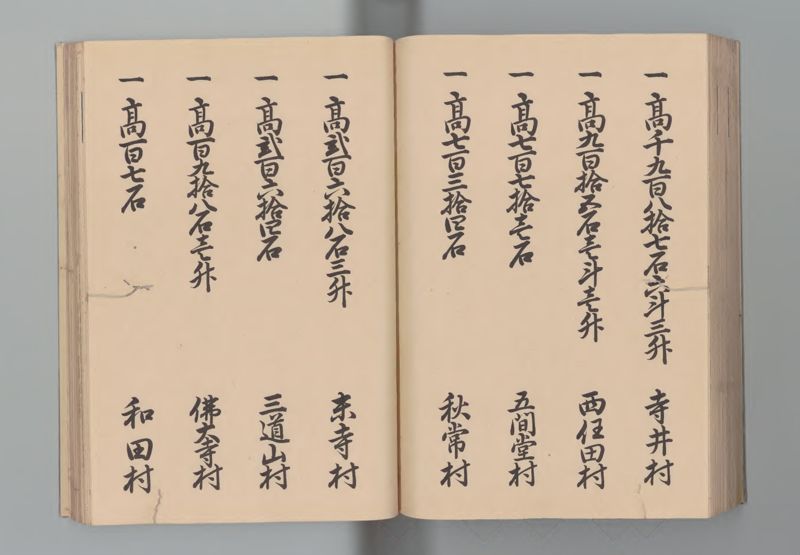 一 高千九百八拾七石六斗三升 寺井村
一 高九百拾五石壱斗壱升 西任田村
一 高七百七拾壱石 五間堂村
一 高七百三拾四石 秋常村
一 高弐百六拾八石三升 末寺村
一 高弐百六拾四石 三道山村
一 高百九拾八石壱升 佛大寺村
一 高百七石 和田村